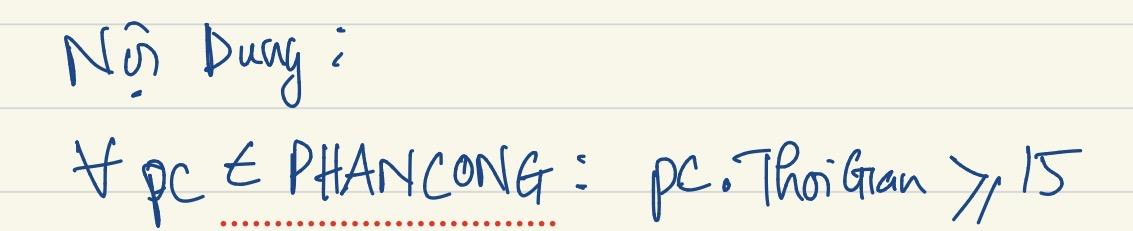 Nội Dung :
∀ pc ∈ PHANCONG : pc.ThoiGian ⩾ 15